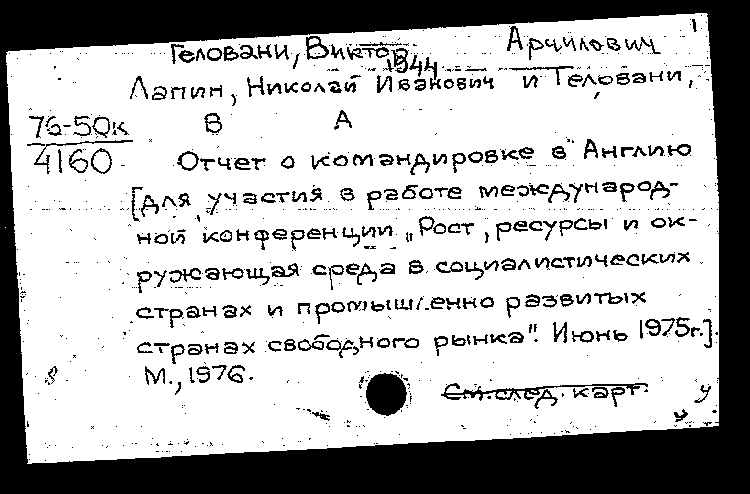 Геловани, Виктор Арчилович
1944
Лапин, Николай Иванович и Геловани,
76-50к В А
4160 Отчет о командировке в Англию
[для участия в работе международ-
ной конференции „Рост, ресурсы и ок-
ружающая среда в социалистических
странах и промышленно развитых
странах свободного рынка". Июнь 1975г.].
М., 1976.
См. след. карт.